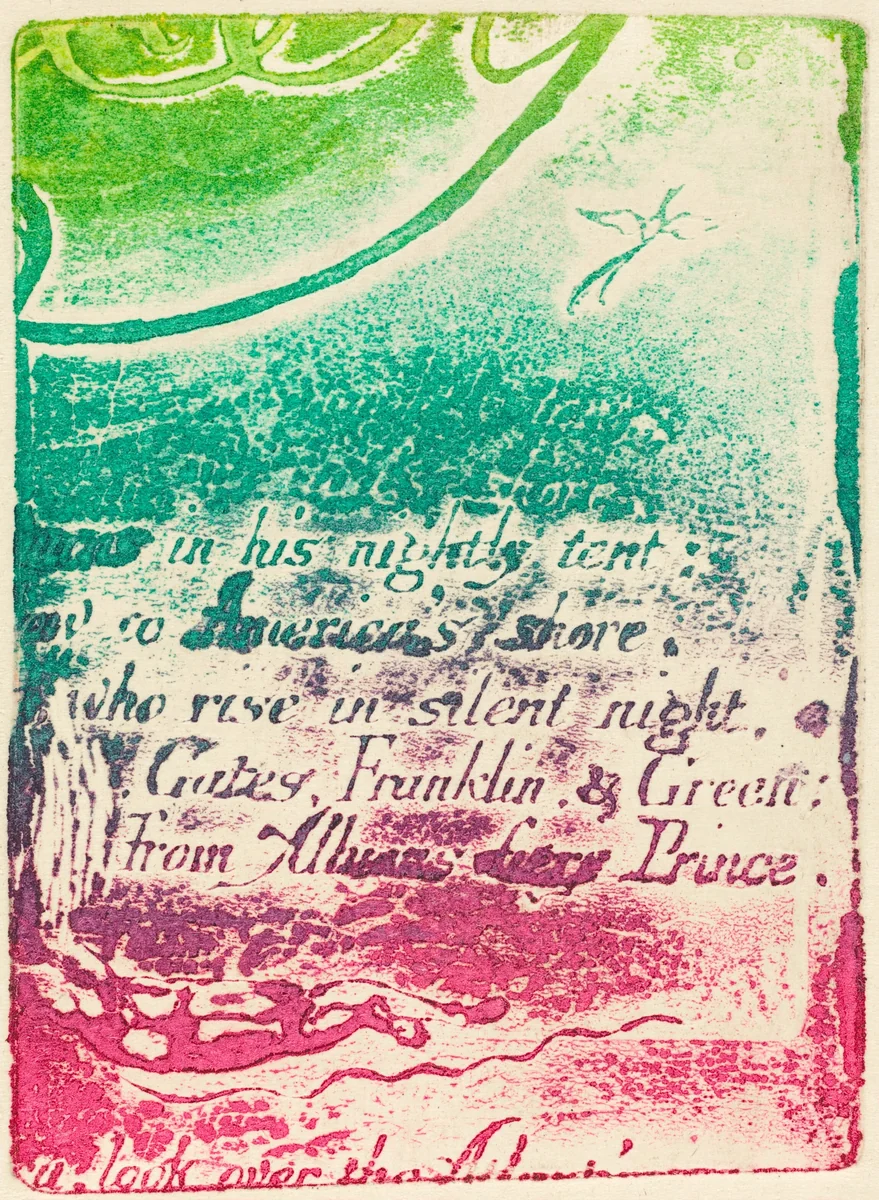 in his nightly tent :
to America's shore.
who rise in silent night.
, Gates, Franklin, & Green;
From Albions fiery Prince.
a, look over the